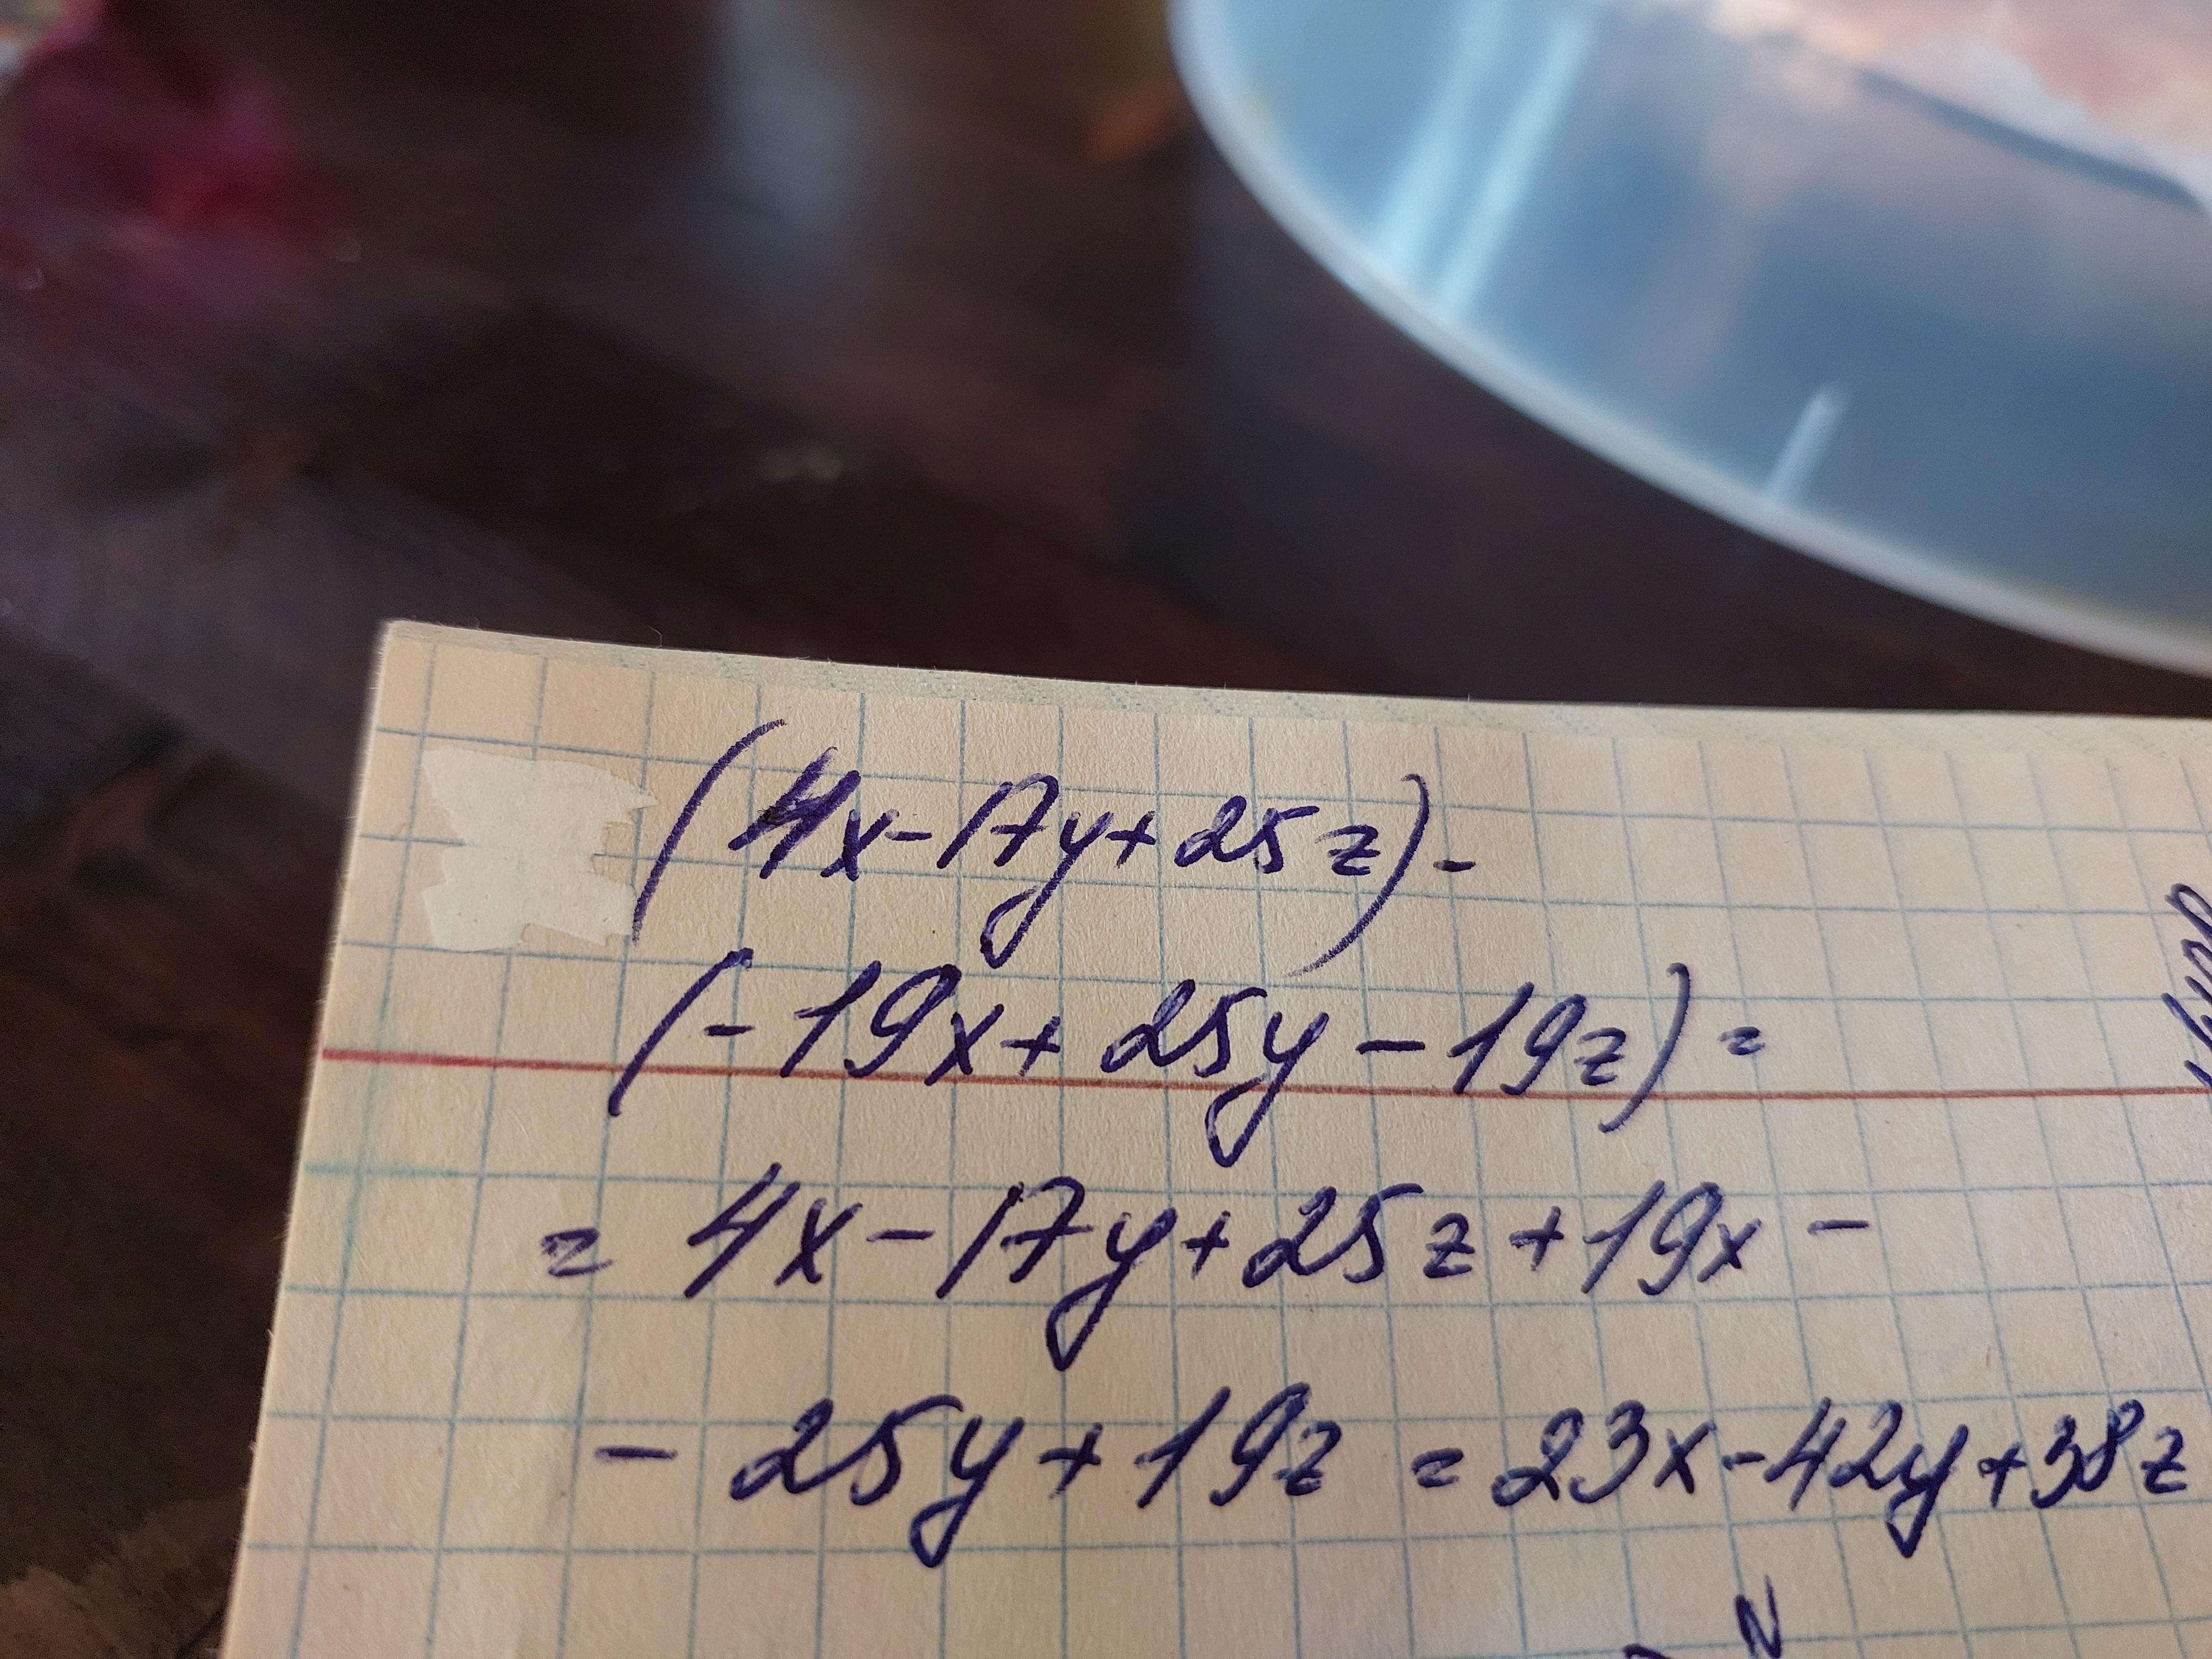 (4x-17y+25z)-
(-19x+25y-19z)=
= 4x-17y+25z+19x-
- 25y+19z = 23x-42y+38z
N